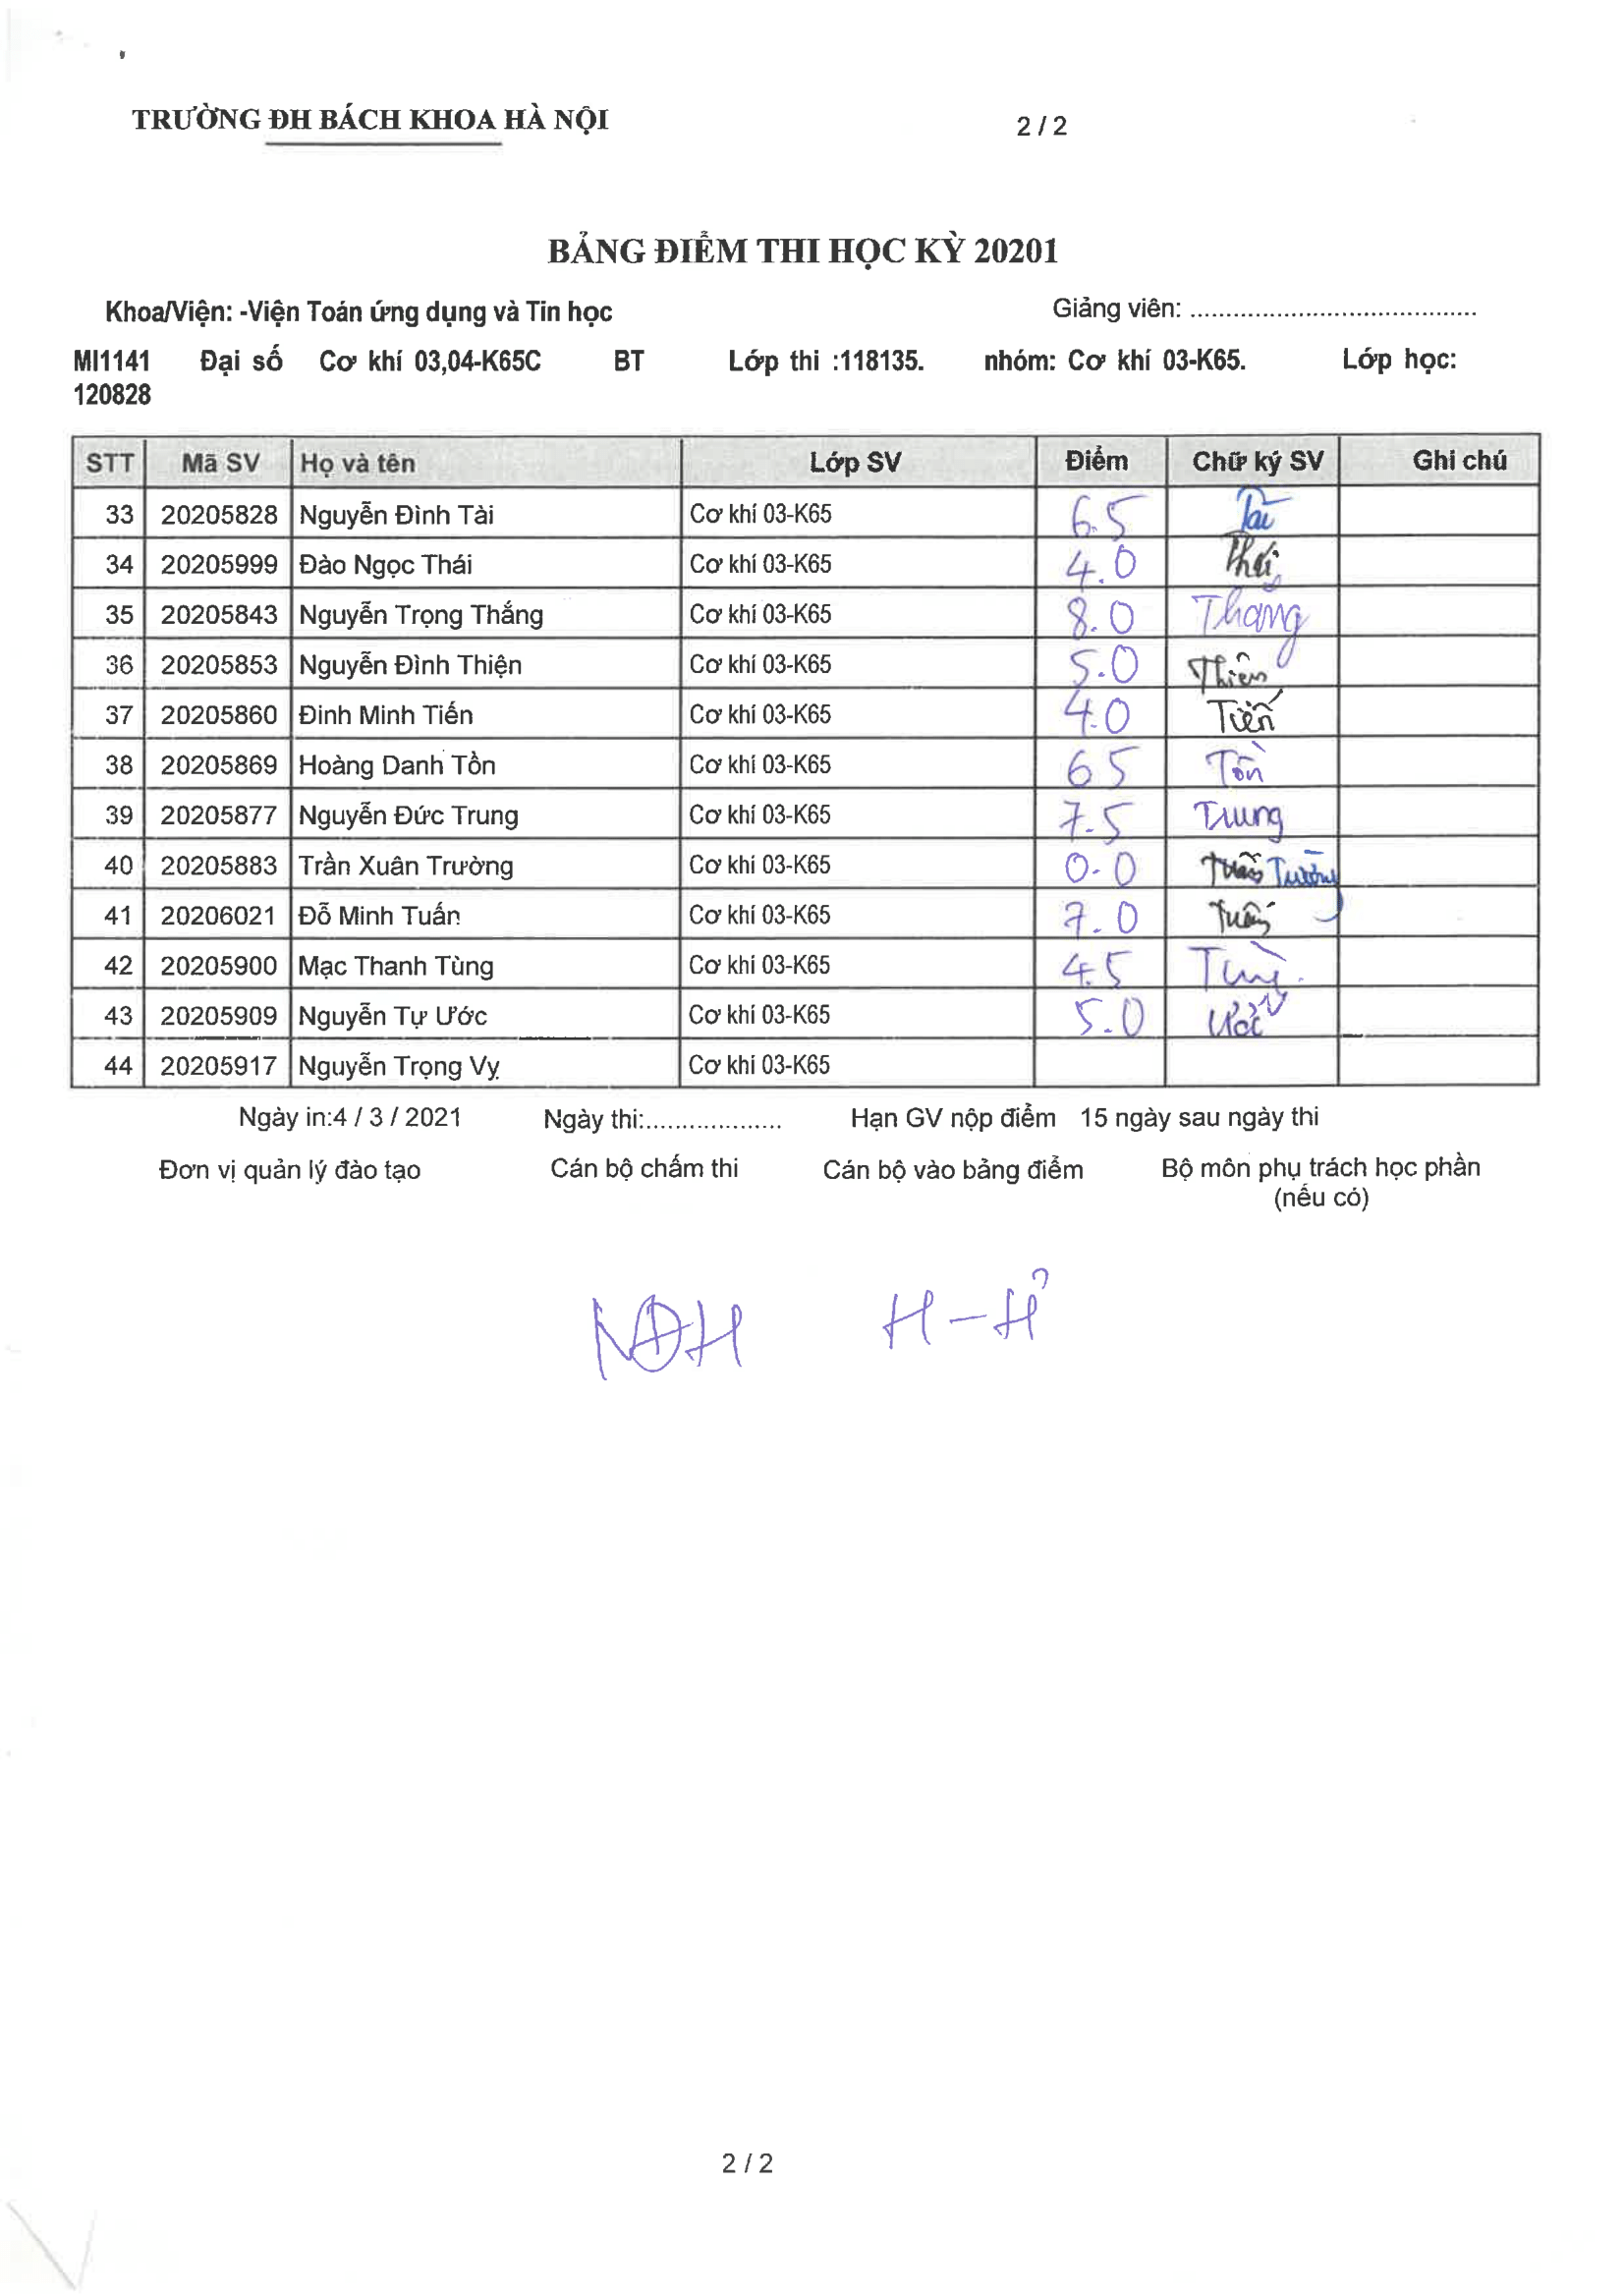 TRƯỜNG ĐH BÁCH KHOA HÀ NỘI 2 / 2
BẢNG ĐIỂM THI HỌC KỲ 20201
Khoa/Viện: -Viện Toán ứng dụng và Tin học Giảng viên: ........................................
MI1141 Đại số Cơ khí 03,04-K65C BT Lớp thi :118135. nhóm: Cơ khí 03-K65. Lớp học:
120828
STT Mã SV Họ và tên Lớp SV Điểm Chữ ký SV Ghi chú
33 20205828 Nguyễn Đình Tài Cơ khí 03-K65 6.5 Tài
34 20205999 Đào Ngọc Thái Cơ khí 03-K65 4.0 Thái
35 20205843 Nguyễn Trọng Thắng Cơ khí 03-K65 8.0 Thắng
36 20205853 Nguyễn Đình Thiện Cơ khí 03-K65 5.0 Thiện
37 20205860 Đinh Minh Tiến Cơ khí 03-K65 4.0 Tiến
38 20205869 Hoàng Danh Tồn Cơ khí 03-K65 6 5 Tồn
39 20205877 Nguyễn Đức Trung Cơ khí 03-K65 7.5 Trung
40 20205883 Trần Xuân Trường Cơ khí 03-K65 0.0 Tuấn Trường
41 20206021 Đỗ Minh Tuấn Cơ khí 03-K65 7.0 Tuấn
42 20205900 Mạc Thanh Tùng Cơ khí 03-K65 4.5 Tùng
43 20205909 Nguyễn Tự Ước Cơ khí 03-K65 5.0 Ước
44 20205917 Nguyễn Trọng Vỵ Cơ khí 03-K65
Ngày in:4 / 3 / 2021 Ngày thi:................... Hạn GV nộp điểm 15 ngày sau ngày thi
Đơn vị quản lý đào tạo Cán bộ chấm thi Cán bộ vào bảng điểm Bộ môn phụ trách học phần
(nếu có)
NĐH H-Hỉ
2 / 2